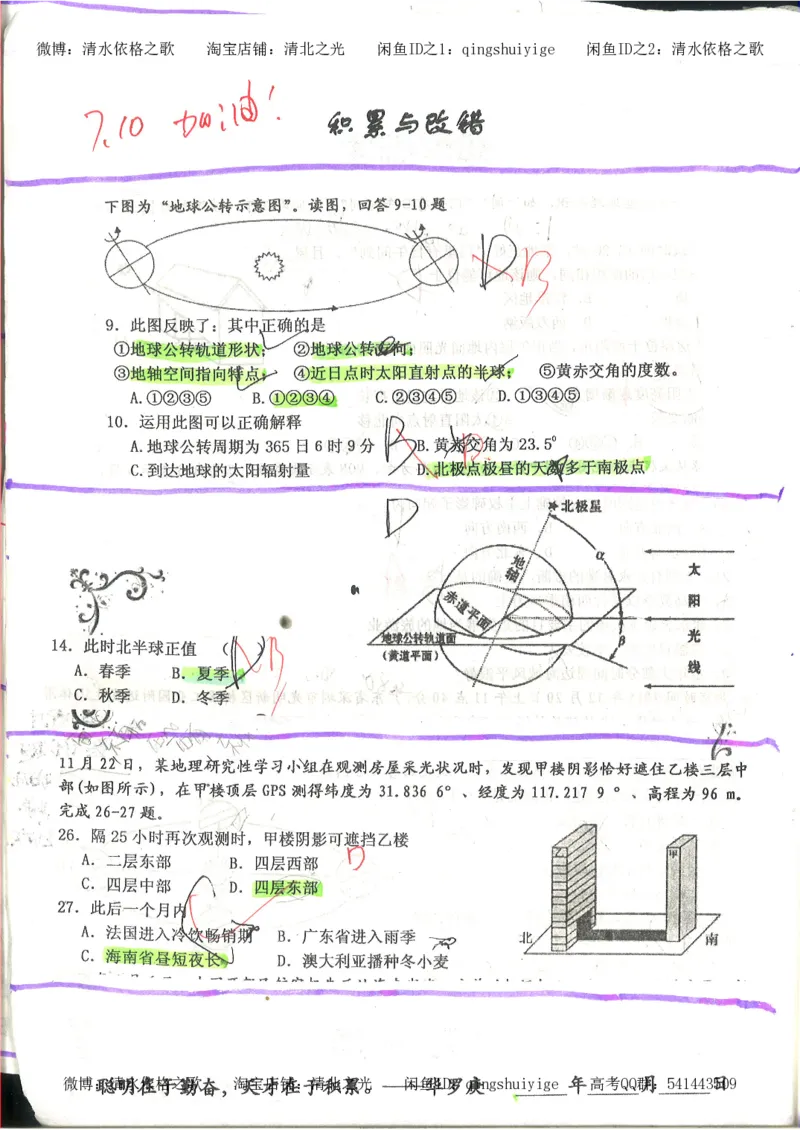 微博：清水依格之歌 淘宝店铺：清北之光 闲鱼ID之1：qingshuiyige 闲鱼ID之2：清水依格之歌
7.10 加油！
积累与改错
下图为“地球公转示意图”。读图，回答 9-10 题
D B
9．此图反映了：其中正确的是
①地球公转轨道形状； ②地球公转方向；
③地轴空间指向特点； ④近日点时太阳直射点的半球； ⑤黄赤交角的度数。
A.①②③⑤ B.①②③④ C.②③④⑤ D.①③④⑤
10．运用此图可以正确解释
A.地球公转周期为 365 日 6 时 9 分 B.黄赤交角为 23.5⁰
C.到达地球的太阳辐射量 D.北极点极昼的天数多于南极点
D
北极星
地轴
α
太阳光线
赤道平面
地球公转轨道面
(黄道平面)
β
14．此时北半球正值 （ ）
B
A．春季 B．夏季
C．秋季 D．冬季
11 月 22 日，某地理研究性学习小组在观测房屋采光状况时，发现甲楼阴影恰好遮住乙楼三层中
部(如图所示)，在甲楼顶层 GPS 测得纬度为 31.836 6°、经度为 117.217 9 °、高程为 96 m。
完成 26-27 题。
26．隔 25 小时再次观测时，甲楼阴影可遮挡乙楼
D
A．二层东部 B．四层西部
C．四层中部 D．四层东部
27．此后一个月内
C
A．法国进入冷饮畅销期 B．广东省进入雨季
C．海南省昼短夜长 D．澳大利亚播种冬小麦
乙 甲
北 南
聪明在于勤奋，天才在于积累。——华罗庚 年 月 日
微博：清水依格之歌 淘宝店铺：清北之光 闲鱼ID：qingshuiyige 高考QQ群：541443509